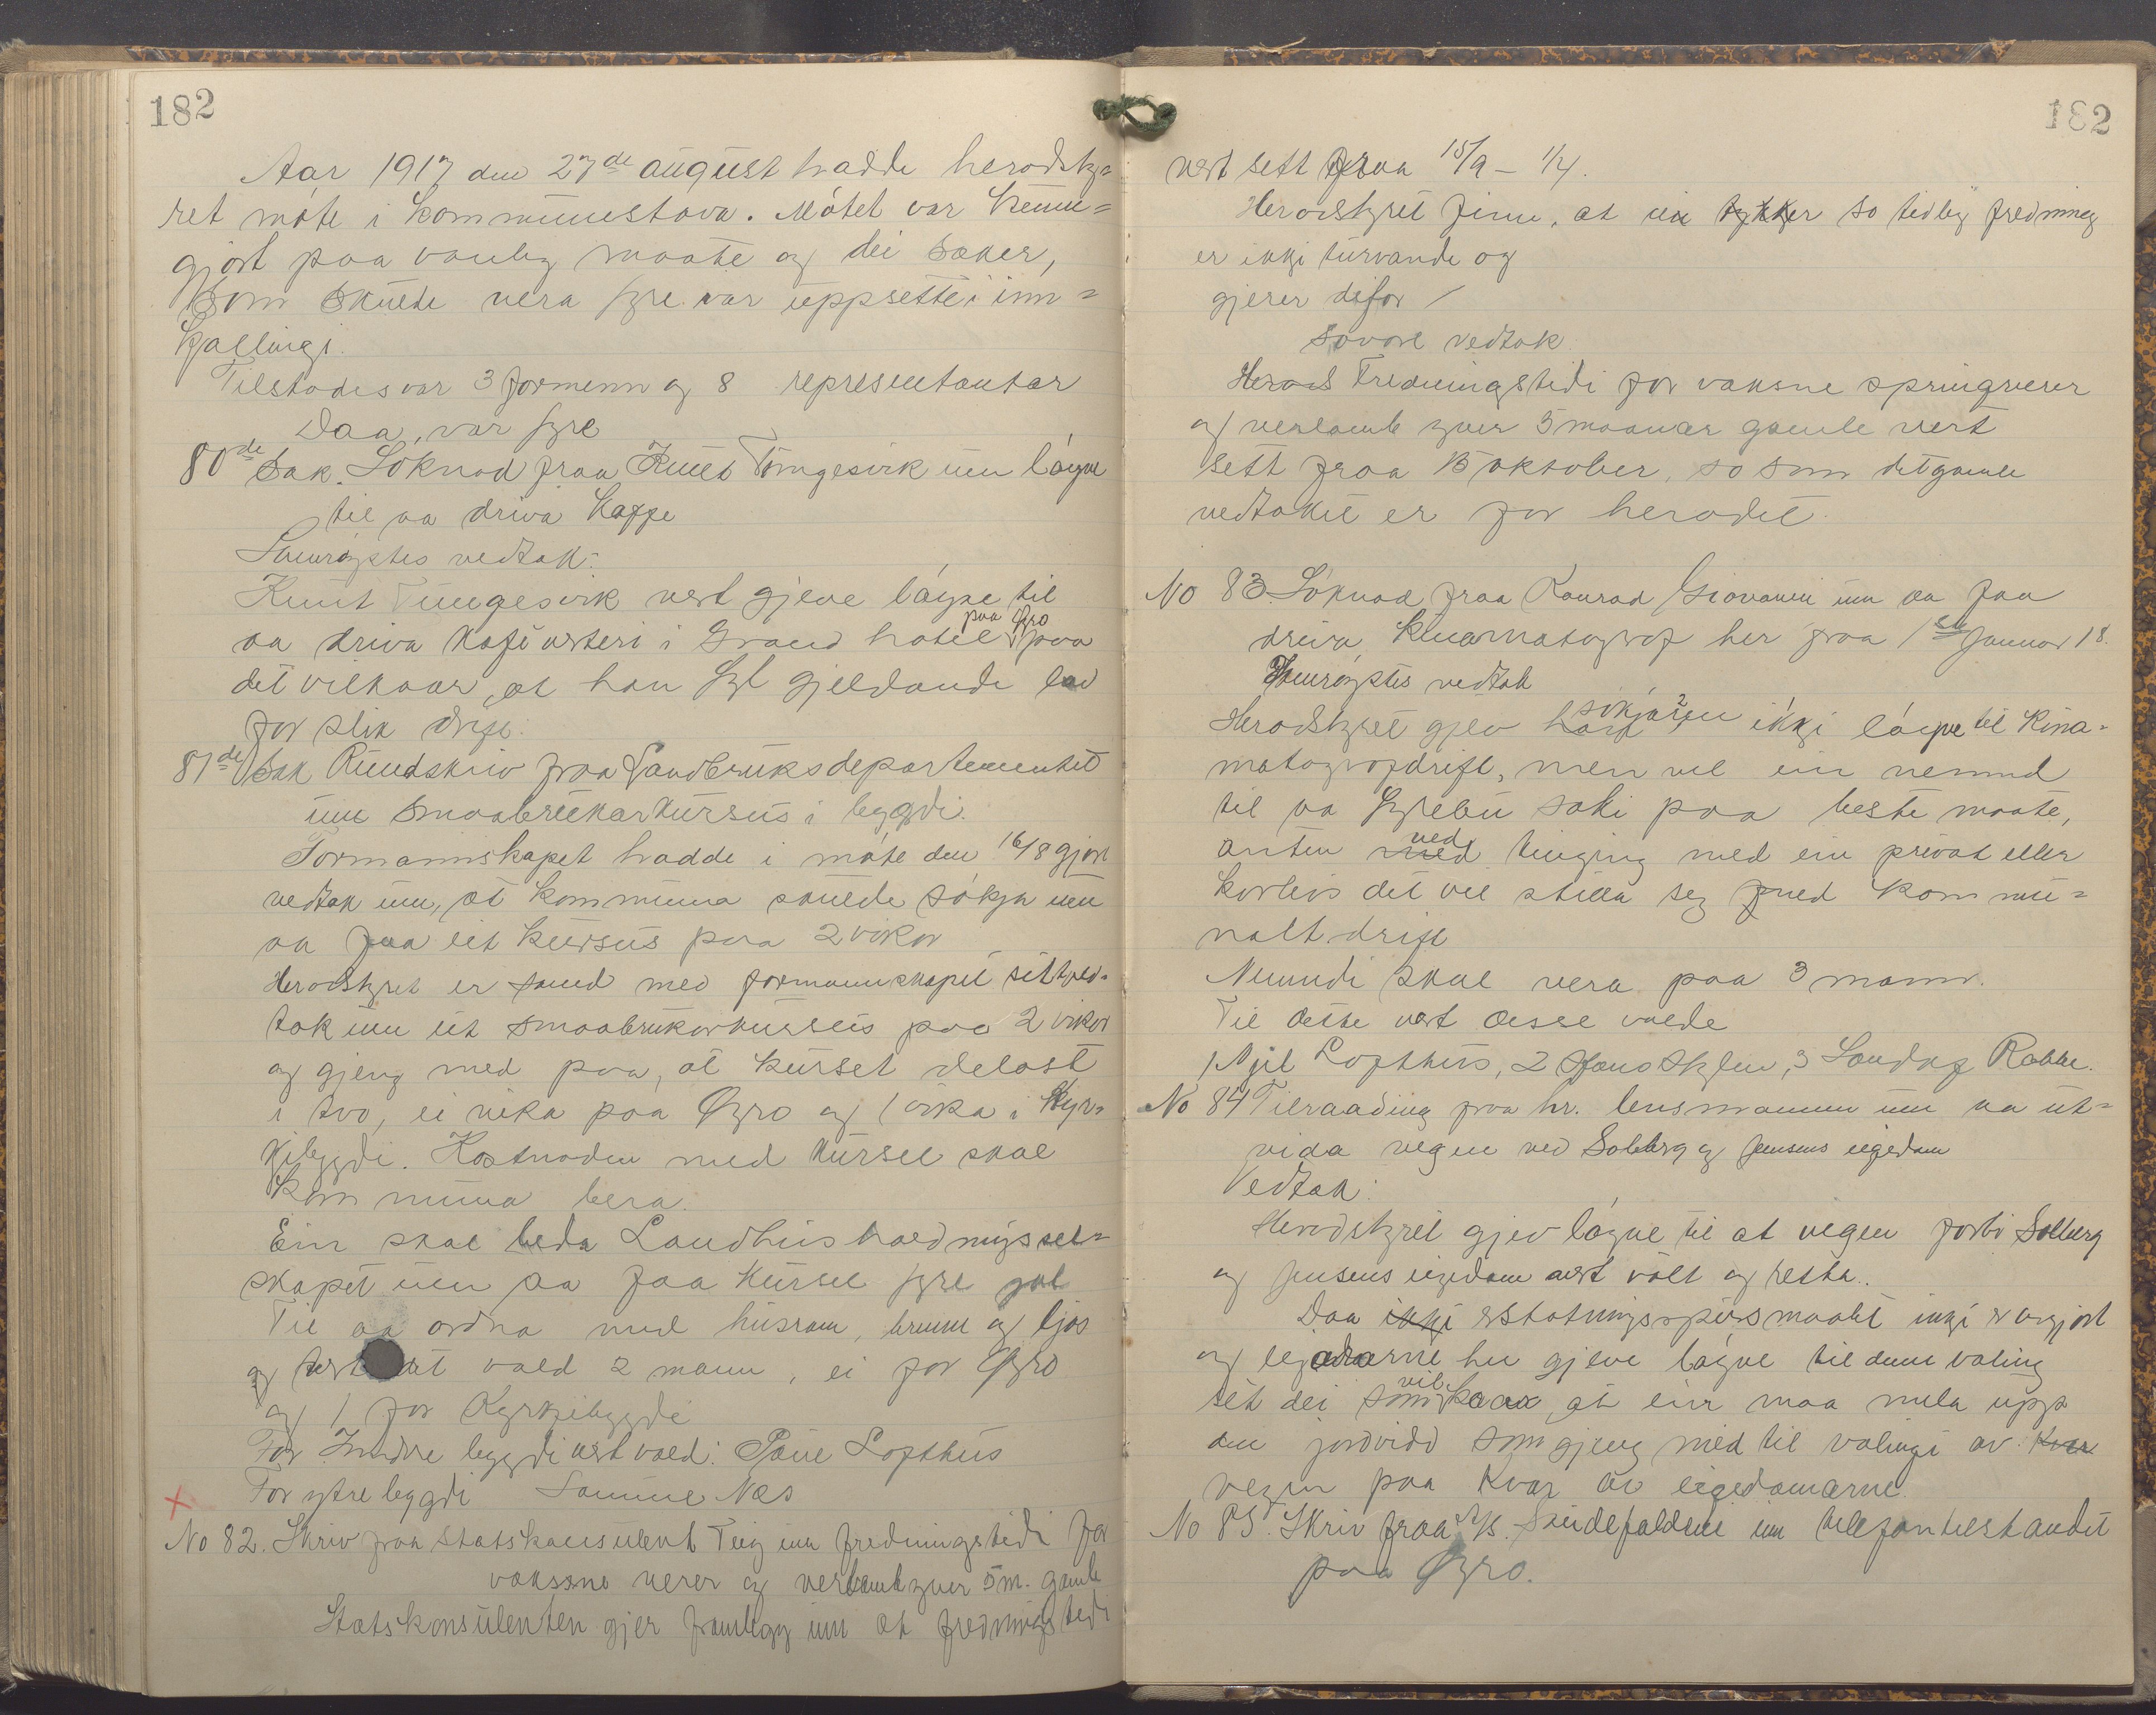 182
Aar 1917 den 27de august hadde heradsty=
ret møte i kommunestova. Møtet var kunn=
gjort paa vanleg maate og dei saker,
som skulde vera fyre var uppsette i inn=
kallingi.
Tilstades var 3 formenn og 8 representantar
Daa var fyre
80de Sak. Søknad fraa Knut Tungesvik um løyve
til aa driva Kaffe
Samrøystes vedtak:
Knut Tungesvik vert gjeve løyve til
aa driva kafévertri i Grand hotel paa Øyro paa
det vilkaar, at han fyl gjeldande lov
for slik drift.
81de Sak Rundskriv fraa Landbruksdepartementet
um smaabrukarkursus i bygdi.
Formannskapet hadde i møte den 16/8 gjort
vedtak um, at kommuna skulde søkja um
aa faa eit kursus paa 2 vikor
Heradstyret er samd med formannskapet sitt ved=
tak um eit smaabrukarkursus paa 2 vikor
og gjeng med paa, at kurset delast
i tvo, ei vika paa Øyro og 1 vika i Kyr=
kjebygdi. Kostnaden med kurset skal
kommuna bera.
Ein skal beda Landhushaldningssel=
skapet um aa faa kurset fyre jol
Til aa ordna med husrom, brenne og ljos
og vert vald 2 mann, ei for Øyro
og 1 for Kyrkjebygdi
For Indre bygdi vert vald: Paul Lofthus
For ytre bygdi Samuel Næs
No 82. Skriv fraa Statskonsulent Teig um fredningstidi for
vaksne verer og verlamb yver 5 m. gamle
Statskonsulenten gjer framlegg um at fredningstidi
182
vert sett fraa 15/9 – 1/4.
Heradstyret finn, at ein so tidleg fredning
er ikkji turvande og
gjerer difor
sovore vedtak.
Fredningstidi for vaksne springverer
og verlamb yver 5 maanar gamle vert
sett fraa 15 oktober, so som det gamle
vedtaket er for heradet.
No 83. Søknad fraa Konrad Giovanni um aa faa
driva kinamatograf her fraa 1ste januar 18.
Samrøystes vedtak
Heradstyret gjev søkjaren ikkji løyve til kina=
matografdrift, men vel ein nemnd
til aa fyrebu saki paa beste maate,
anten ved tinging med ein privat eller
korleis det vil stilla seg med kommu=
nalt drift
Nemndi skal vera paa 3 mann.
Til dette vert desse valde
1 Njil Lofthus, 2 Hans Skylen, 3 Sandvg Rabbe.
No 84 Tilraading fraa hr. lensmannen um aa ut=
vida vegen ved Solberg og Jensens eigedom
Vedtak:
Heradstyret gjev løyve til at vegen forbi Solberg
og Jensens eigedom vert vølt og retta.
Daa erstatningsspursmaalet ikkji er avgjort
og eigarane her gjeve løyve til denne vøling
set dei som vilkaar, at ein maa mæla upp
den jordvidd som gjeng med til vølingi av
vegen paa kvar av eigedomarne.
No 85. Skriv fraa A/S. Sildefaldene um telefontilstandet
paa Øyro.